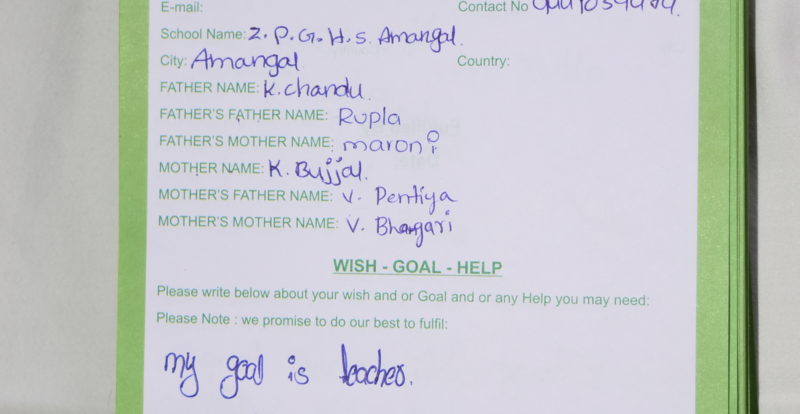 E-mail: Contact No
School Name: Z. P. G. H. S. Amangal.
City: Amangal Country:
FATHER NAME: K. chandu.
FATHER'S FATHER NAME: Rupla
FATHER'S MOTHER NAME: maroni
MOTHER NAME: K. Bujjal.
MOTHER'S FATHER NAME: V. Pentiya
MOTHER'S MOTHER NAME: V. Bhagari
WISH - GOAL - HELP
Please write below about your wish and or Goal and or any Help you may need:
Please Note : we promise to do our best to fulfil:
my goal is teacher.